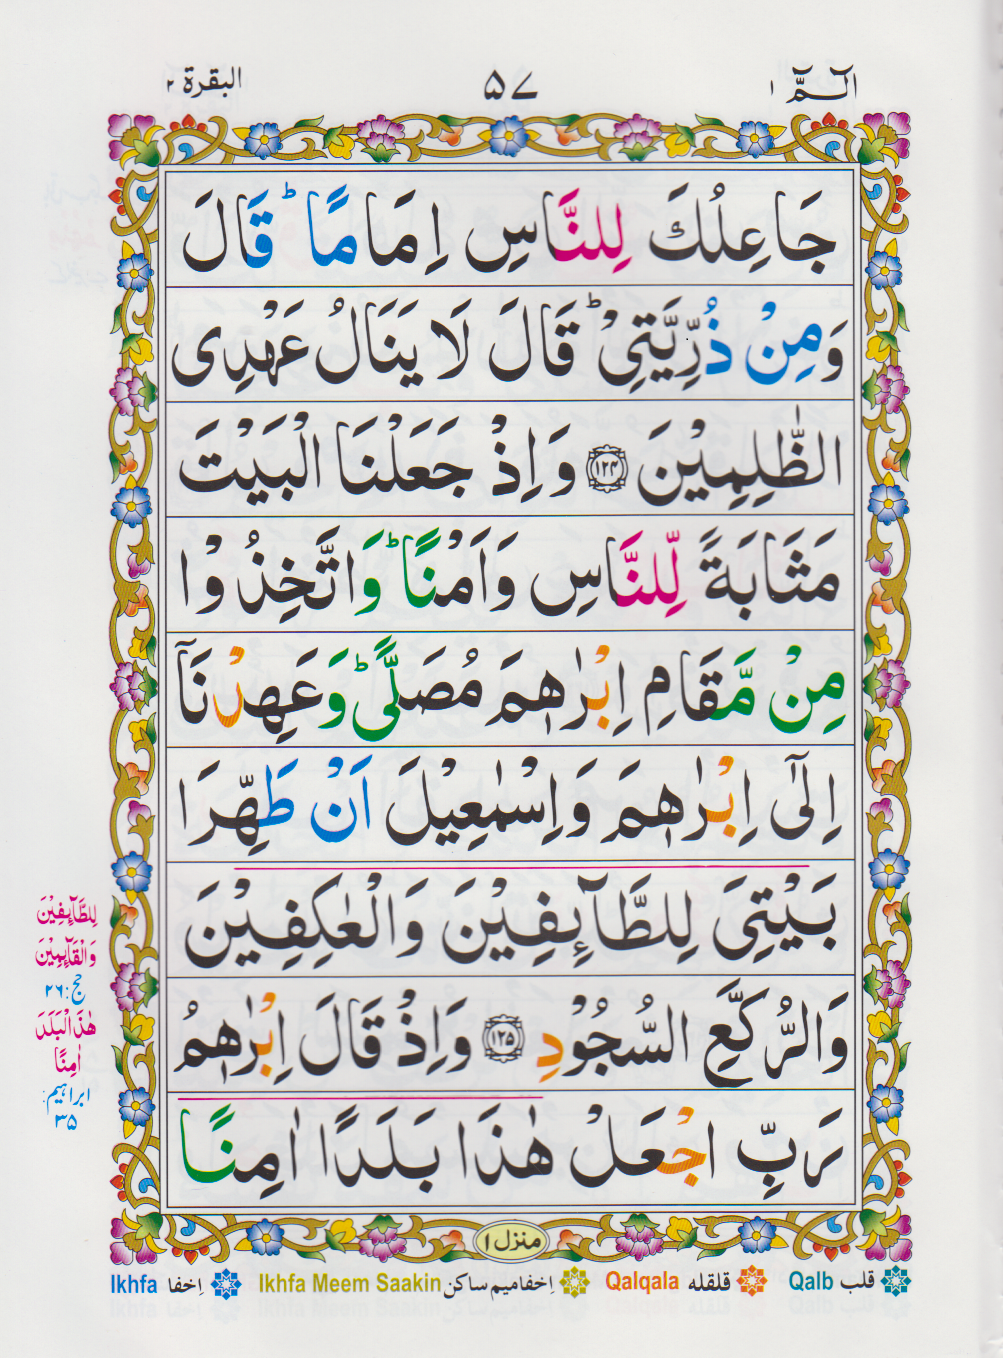 الٓـمّٓ ١
۵۷
البقرة ٢
جَاعِلُكَ لِلنَّاسِ اِمَامًاؕ قَالَ
وَمِنْ ذُرِّيَّتِىْؕ قَالَ لَا يَنَالُ عَهْدِى
الظّٰلِمِيْنَ ﴿١٢۴﴾ وَاِذْ جَعَلْنَا الْبَيْتَ
مَثَابَةً لِّلنَّاسِ وَاَمْنًاؕ وَاتَّخِذُوْا
مِنْ مَّقَامِ اِبْرٰهٖمَ مُصَلًّىؕ وَعَهِدْنَاۤ
اِلٰٓى اِبْرٰهٖمَ وَاِسْمٰعِيْلَ اَنْ طَهِّرَا
بَيْتِىَ لِلطَّآئِفِيْنَ وَالْعٰكِفِيْنَ
وَالرُّكَّعِ السُّجُوْدِ ﴿١٢۵﴾ وَاِذْ قَالَ اِبْرٰهٖمُ
رَبِّ اجْعَلْ هٰذَا بَلَدًا اٰمِنًا
لِلطَّآئِفِيْنَ
وَالْقَآئِمِيْنَ
حج:٢٦
هٰذَا الْبَلَدَ
اٰمِنًا
ابراہیم:
٣۵
منزل ١
قلب Qalb
قلقله Qalqala
اِخفامیم ساکن Ikhfa Meem Saakin
اِخفا Ikhfa